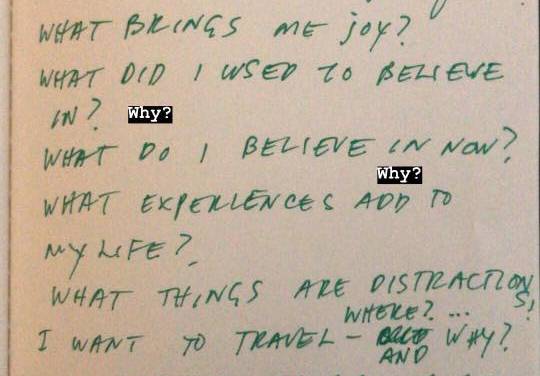 WHAT BRINGS ME JOY?
WHAT DID I USED TO BELIEVE
IN? Why?
WHAT DO I BELIEVE IN NOW?
Why?
WHAT EXPERIENCES ADD TO
MY LIFE?
WHAT THINGS ARE DISTRACTIONS!
WHERE?...
I WANT TO TRAVEL – WHY?
AND